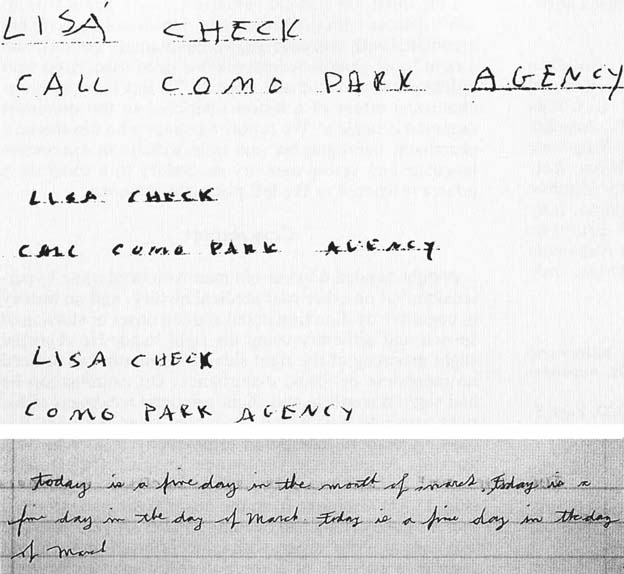 LISA CHECK
CALL COMO PARK AGENCY
LISA CHECK
CALL COMO PARK AGENCY
LISA CHECK
COMO PARK AGENCY
today is a fine day in the month of march. Today is a
fine day in the day of March. Today is a fine day in the day
of March